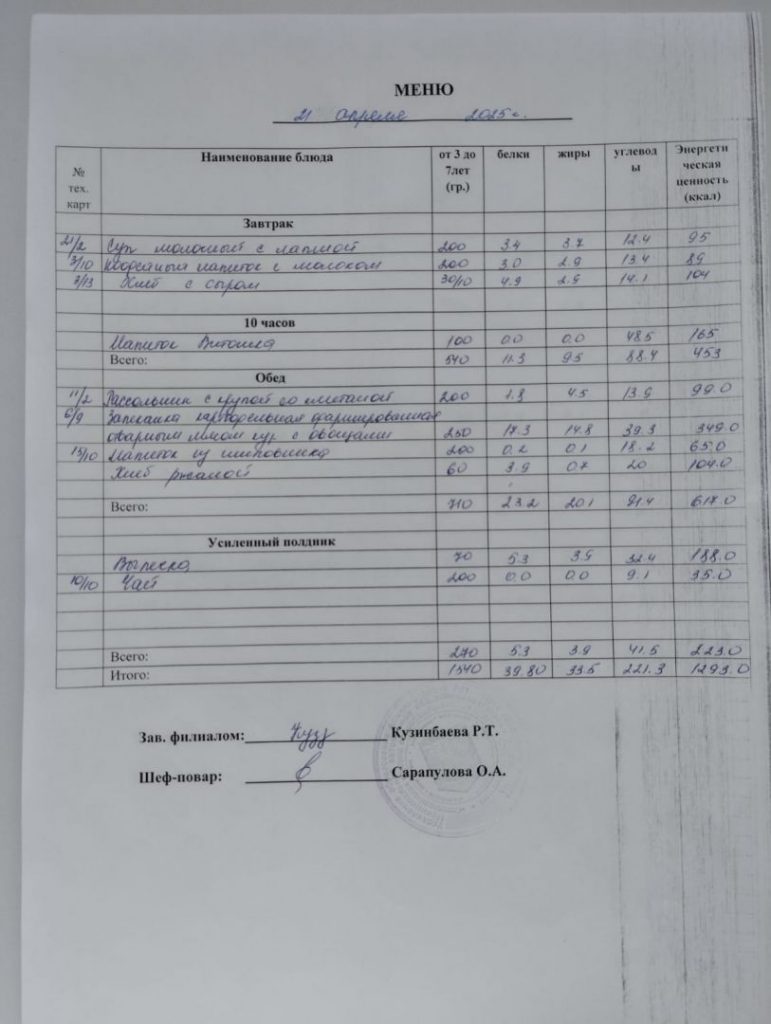 МЕНЮ
21 апреля 2025 г.
№ тех. карт Наименование блюда от 3 до 7лет (гр.) белки жиры углеводы Энергетическая ценность (ккал)
Завтрак
21/2 Суп молочный с лапшой 200 3.4 3.7 12.4 95
3/10 Кофейный напиток с молоком 200 3.0 2.9 13.4 89
3/13 Хлеб с сыром 30/10 4.9 2.9 14.1 104
10 часов
Напиток Витошка 100 0.0 0.0 48.5 165
Всего: 540 11.3 9.5 88.4 453
Обед
11/2 Рассольник с крупой со сметаной 200 1.8 4.5 13.9 99.0
6/9 Запеканка картофельная фаршированная
отварным мясом кур с овощами 250 17.3 14.8 39.3 349.0
15/10 Напиток из шиповника 200 0.2 0.1 18.2 65.0
Хлеб ржаной 60 3.9 0.7 20 104.0
Всего: 710 23.2 20.1 91.4 617.0
Усиленный полдник
Выпечка 70 5.3 3.9 32.4 188.0
10/10 Чай 200 0.0 0.0 9.1 35.0
Всего: 270 5.3 3.9 41.5 223.0
Итого: 1540 39.80 33.5 221.3 1293.0
Зав. филиалом: Кузинбаева Р.Т.
Шеф-повар: Сарапулова О.А.